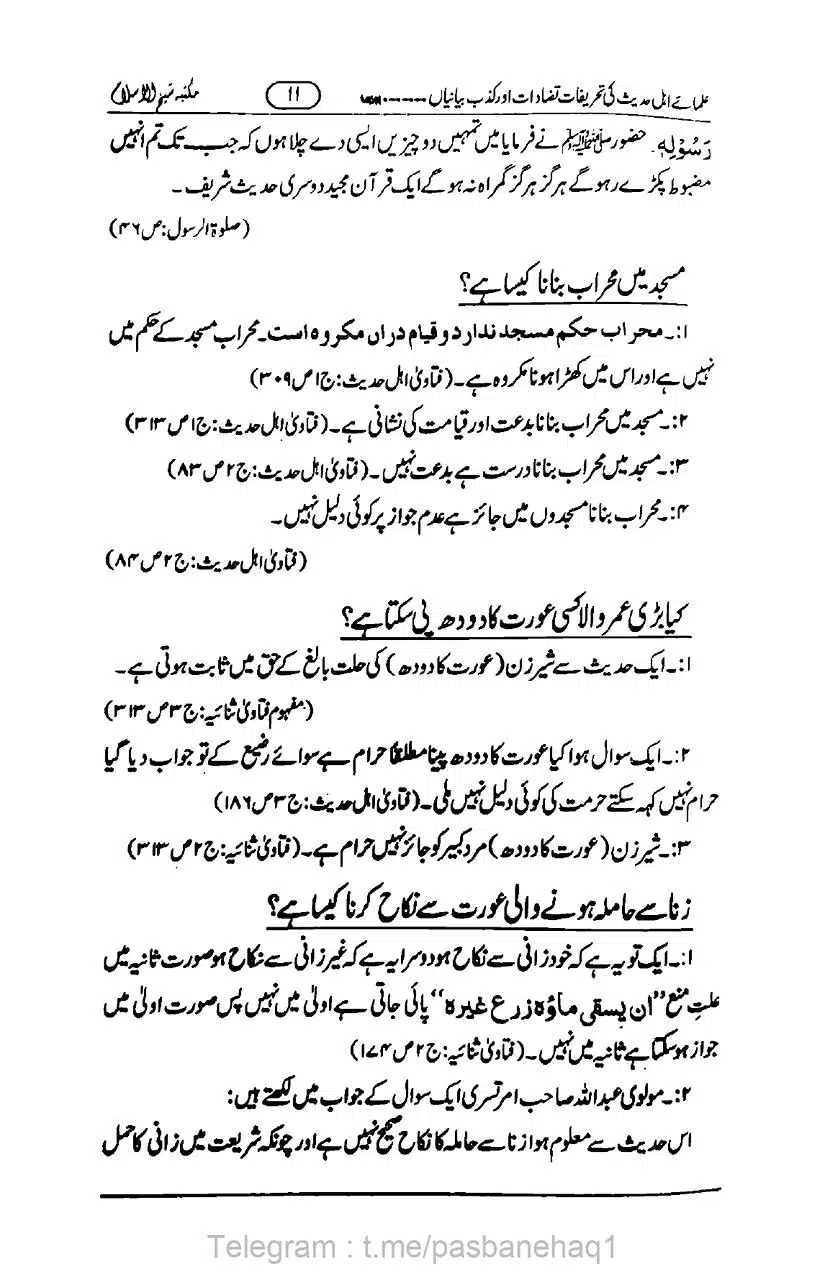 علمائے اہل حدیث کی تحریفات تضادات اور کذب بیانیاں ۔۔۔۔۔۔ ۱۱ مکتبہ نعیم الاسلام
رَسُوْلِہٖ۔ حضور ﷺ نے فرمایا میں تمہیں دو چیزیں ایسی دے چلا ہوں کہ جب تک تم انہیں
مضبوط پکڑے رہو گے ہرگز ہرگز گمراہ نہ ہو گے ایک قرآن مجید دوسری حدیث شریف۔
(صلوۃ الرسول: ص ۴۶)
مسجد میں محراب بنانا کیسا ہے؟
۱:۔ محراب حکم مسجد ندارد و قیام دراں مکروہ است۔ محراب مسجد کے حکم میں
نہیں ہے اور اس میں کھڑا ہونا مکروہ ہے۔ (فتاویٰ اہل حدیث: ج ۱ ص ۳۰۹)
۲:۔ مسجد میں محراب بنانا بدعت اور قیامت کی نشانی ہے۔ (فتاویٰ اہل حدیث: ج ۱ ص ۳۱۳)
۳:۔ مسجد میں محراب بنانا درست ہے بدعت نہیں۔ (فتاویٰ اہل حدیث: ج ۲ ص ۸۳)
۴:۔ محراب بنانا مسجدوں میں جائز ہے عدم جواز پر کوئی دلیل نہیں۔
(فتاویٰ اہل حدیث: ج ۲ ص ۸۴)
کیا بڑی عمر والا کسی عورت کا دودھ پی سکتا ہے؟
۱:۔ ایک حدیث سے شیر زن (عورت کا دودھ) کی حلت بالغ کے حق میں ثابت ہوتی ہے۔
(مفہوم فتاویٰ ثنائیہ: ج ۳ ص ۳۱۳)
۲:۔ ایک سوال ہوا کیا عورت کا دودھ پینا مطلقا حرام ہے سوائے رضیع کے تو جواب دیا گیا
حرام نہیں کہہ سکتے حرمت کی کوئی دلیل نہیں ملی۔ (فتاویٰ اہل حدیث: ج ۳ ص ۱۸۶)
۳:۔ شیر زن (عورت کا دودھ) مرد کبیر کو جائز نہیں حرام ہے۔ (فتاویٰ ثنائیہ: ج ۲ ص ۳۱۳)
زنا سے حاملہ ہونے والی عورت سے نکاح کرنا کیسا ہے؟
۱:۔ ایک تو یہ ہے کہ خود زانی سے نکاح ہو دوسرا یہ ہے کہ غیر زانی سے نکاح ہو صورت ثانیہ میں
علتِ منع ”ان یسقی ماؤہ زرع غیرہ“ پائی جاتی ہے اولیٰ میں نہیں پس صورت اولیٰ میں
جواز ہو سکتا ہے ثانیہ میں نہیں۔ (فتاویٰ ثنائیہ: ج ۲ ص ۱۷۴)
۲:۔ مولوی عبداللہ صاحب امرتسری ایک سوال کے جواب میں لکھتے ہیں:
اس حدیث سے معلوم ہوا زنا سے حاملہ کا نکاح صحیح نہیں ہے اور چونکہ شریعت میں زانی کا حمل
Telegram : t.me/pasbanehaq1